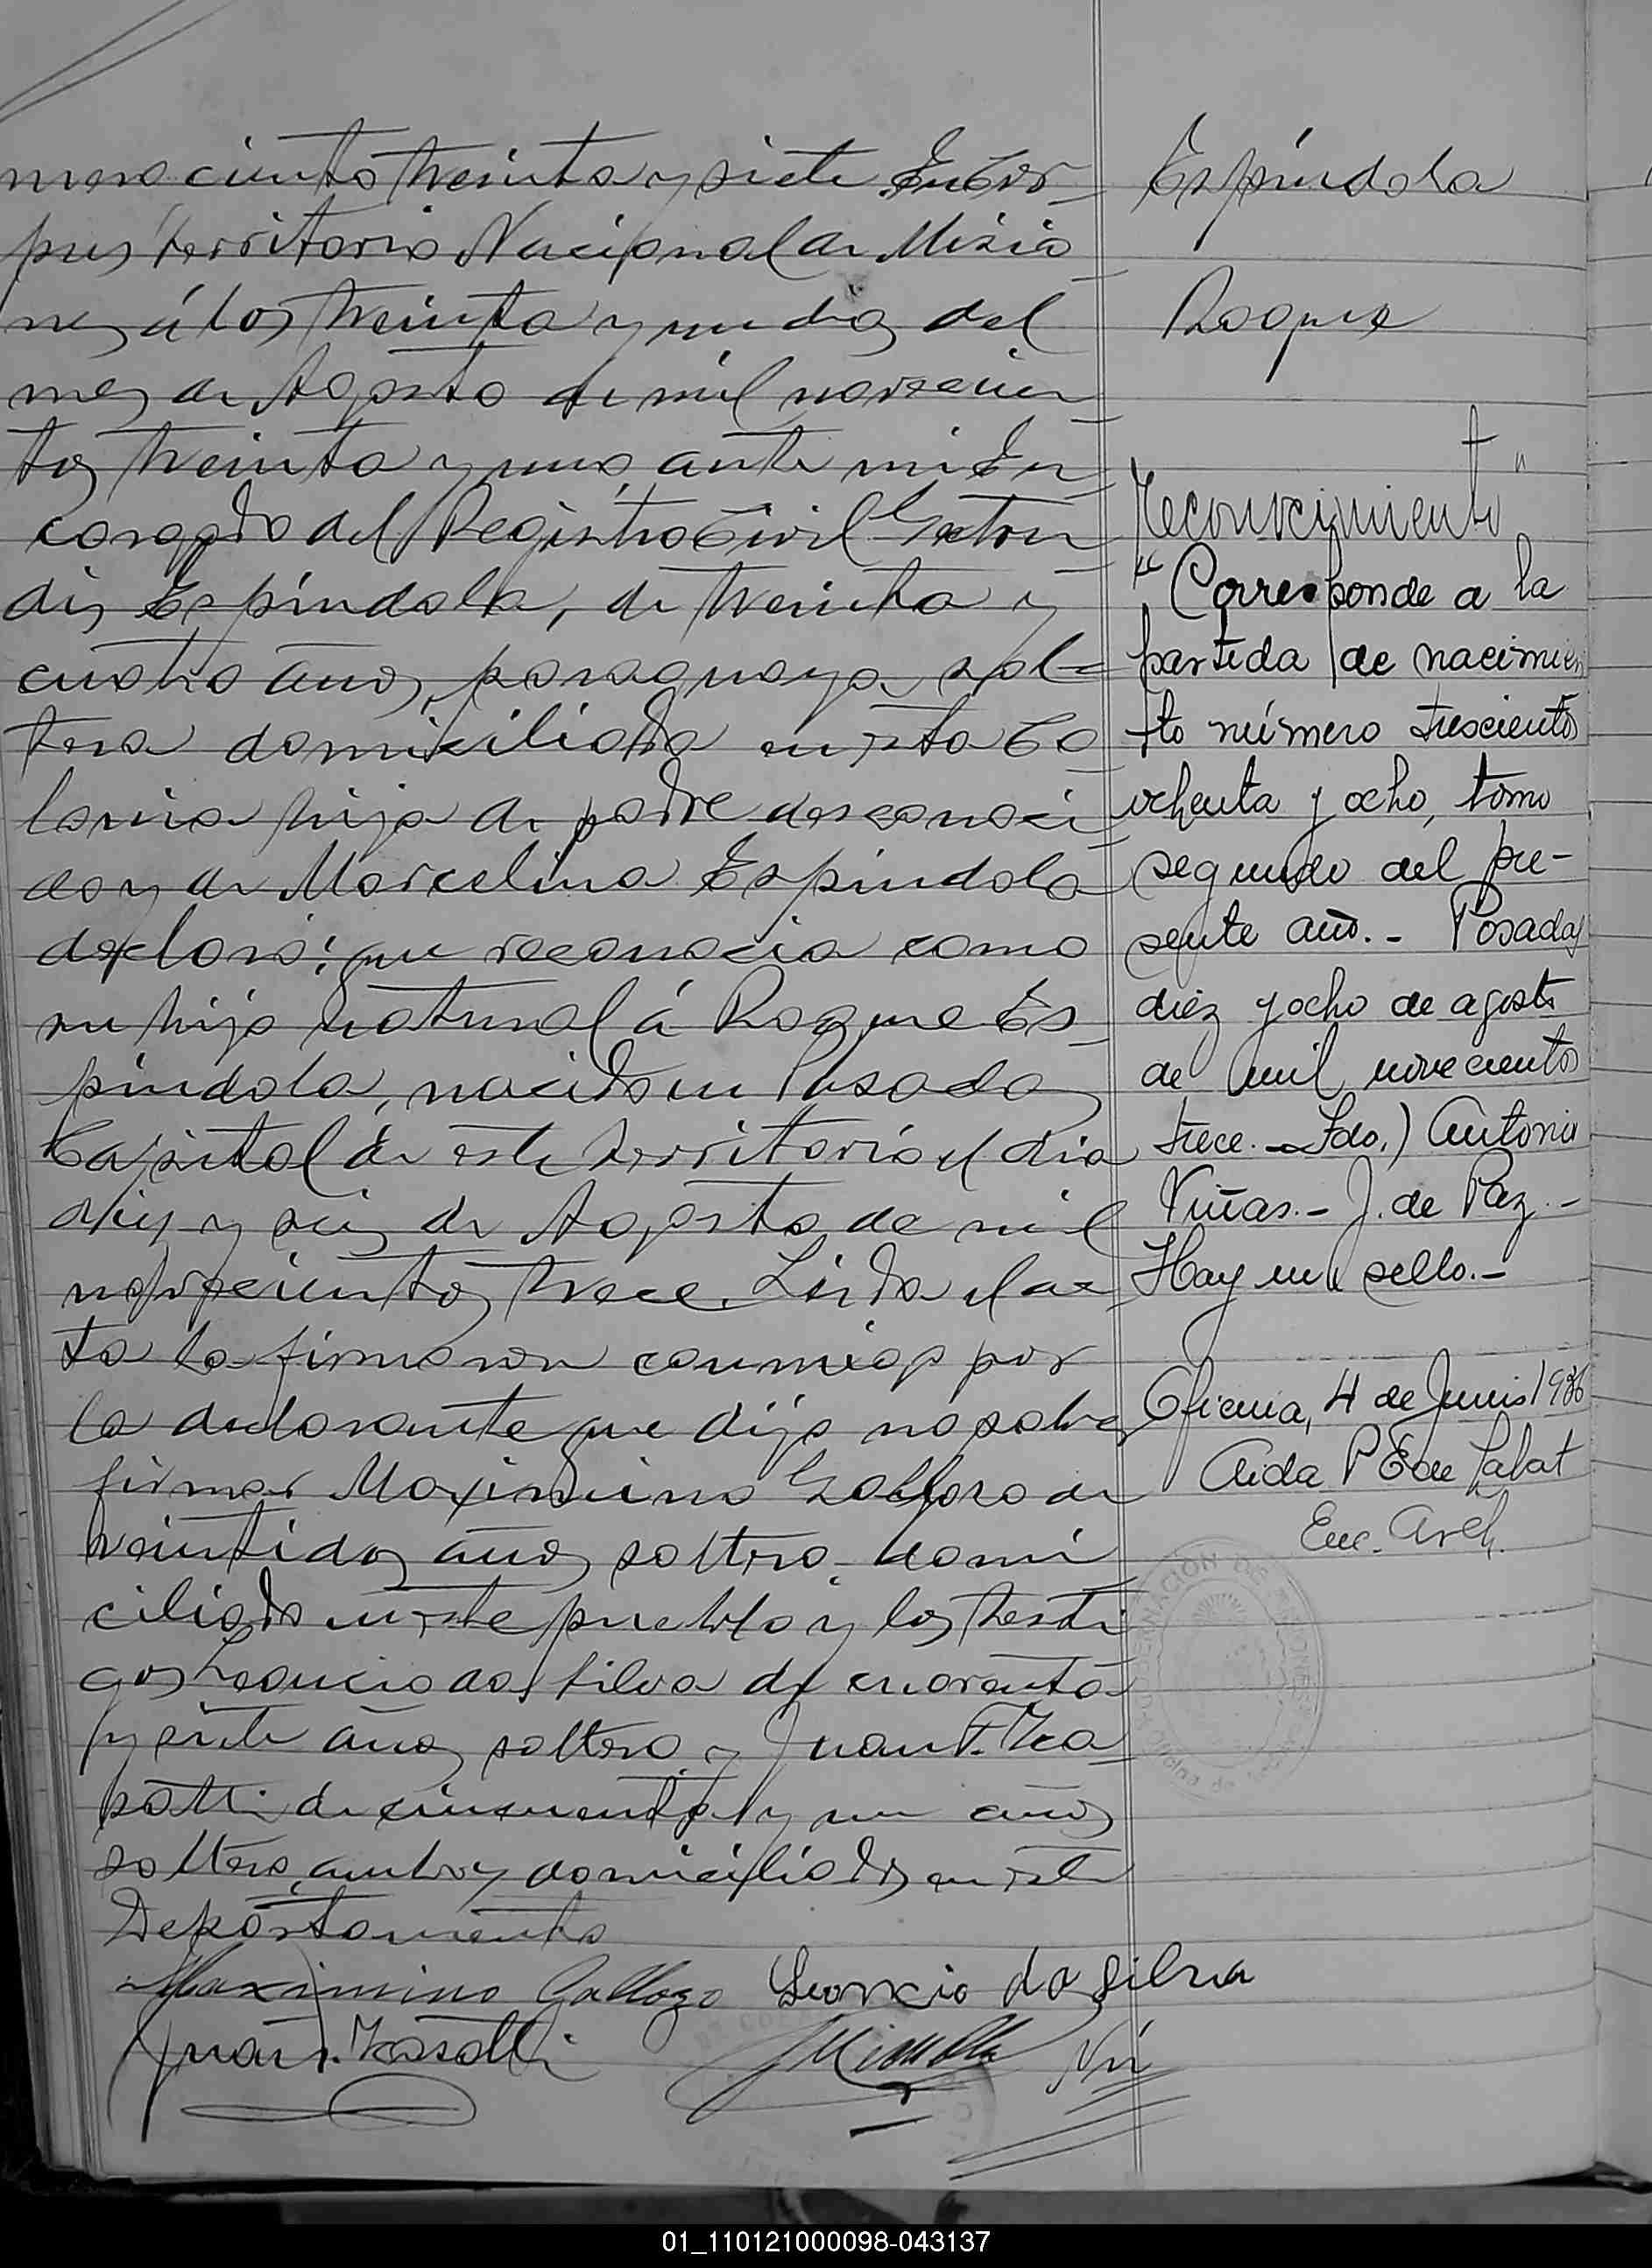 mero ciento treinta y siete En Cor-
pus, territorio Nacional de Misio
nes á los treinta y un dias del
mes de Agosto de mil novecien
tos treinta y uno, ante mi En
cargado del Registro Civil
dis Espíndola, de treinta y
cuatro años, paraguaya sol-
tera domiciliada en esta Co
lonia hija de padre desconoci
do y de Marcelina Espíndola
declaró: que reconocia como
su hijo natural á Roque Es
píndola, nacido en Posadas
Capital de este territorio el dia
diez y seis de Agosto de mil
novecientos trece. Leida el ac
ta la firmaron conmigo por
la declarante que dijo no saber
firmar Maximino Gallozo de
veintidos años soltero domi
ciliado en este pueblo y los testi
gos Leoncio da Silva de cuarenta
y siete años soltero y Juan F. Za
patti de cincuenta y un años
soltero, ambos domiciliados en este
Departamento
Maximino Gallozo Leoncio da Silva
Juan F. Zapatti
Espíndola
Roque
"Reconocimiento"
"Corresponde a la
partida de nacimien
to número trescientos
ochenta y ocho, tomo
segundo del pre-
sente año.- Posadas
diez y ocho de agosto
de mil novecientos
trece.- Fdo.) Antonio
Viñas.- J. de Paz.-
Hay un sello.-
Oficina, 4 de Junio 1936
Aida P E de Labat
Enc. Arch.
01_110121000098-043137